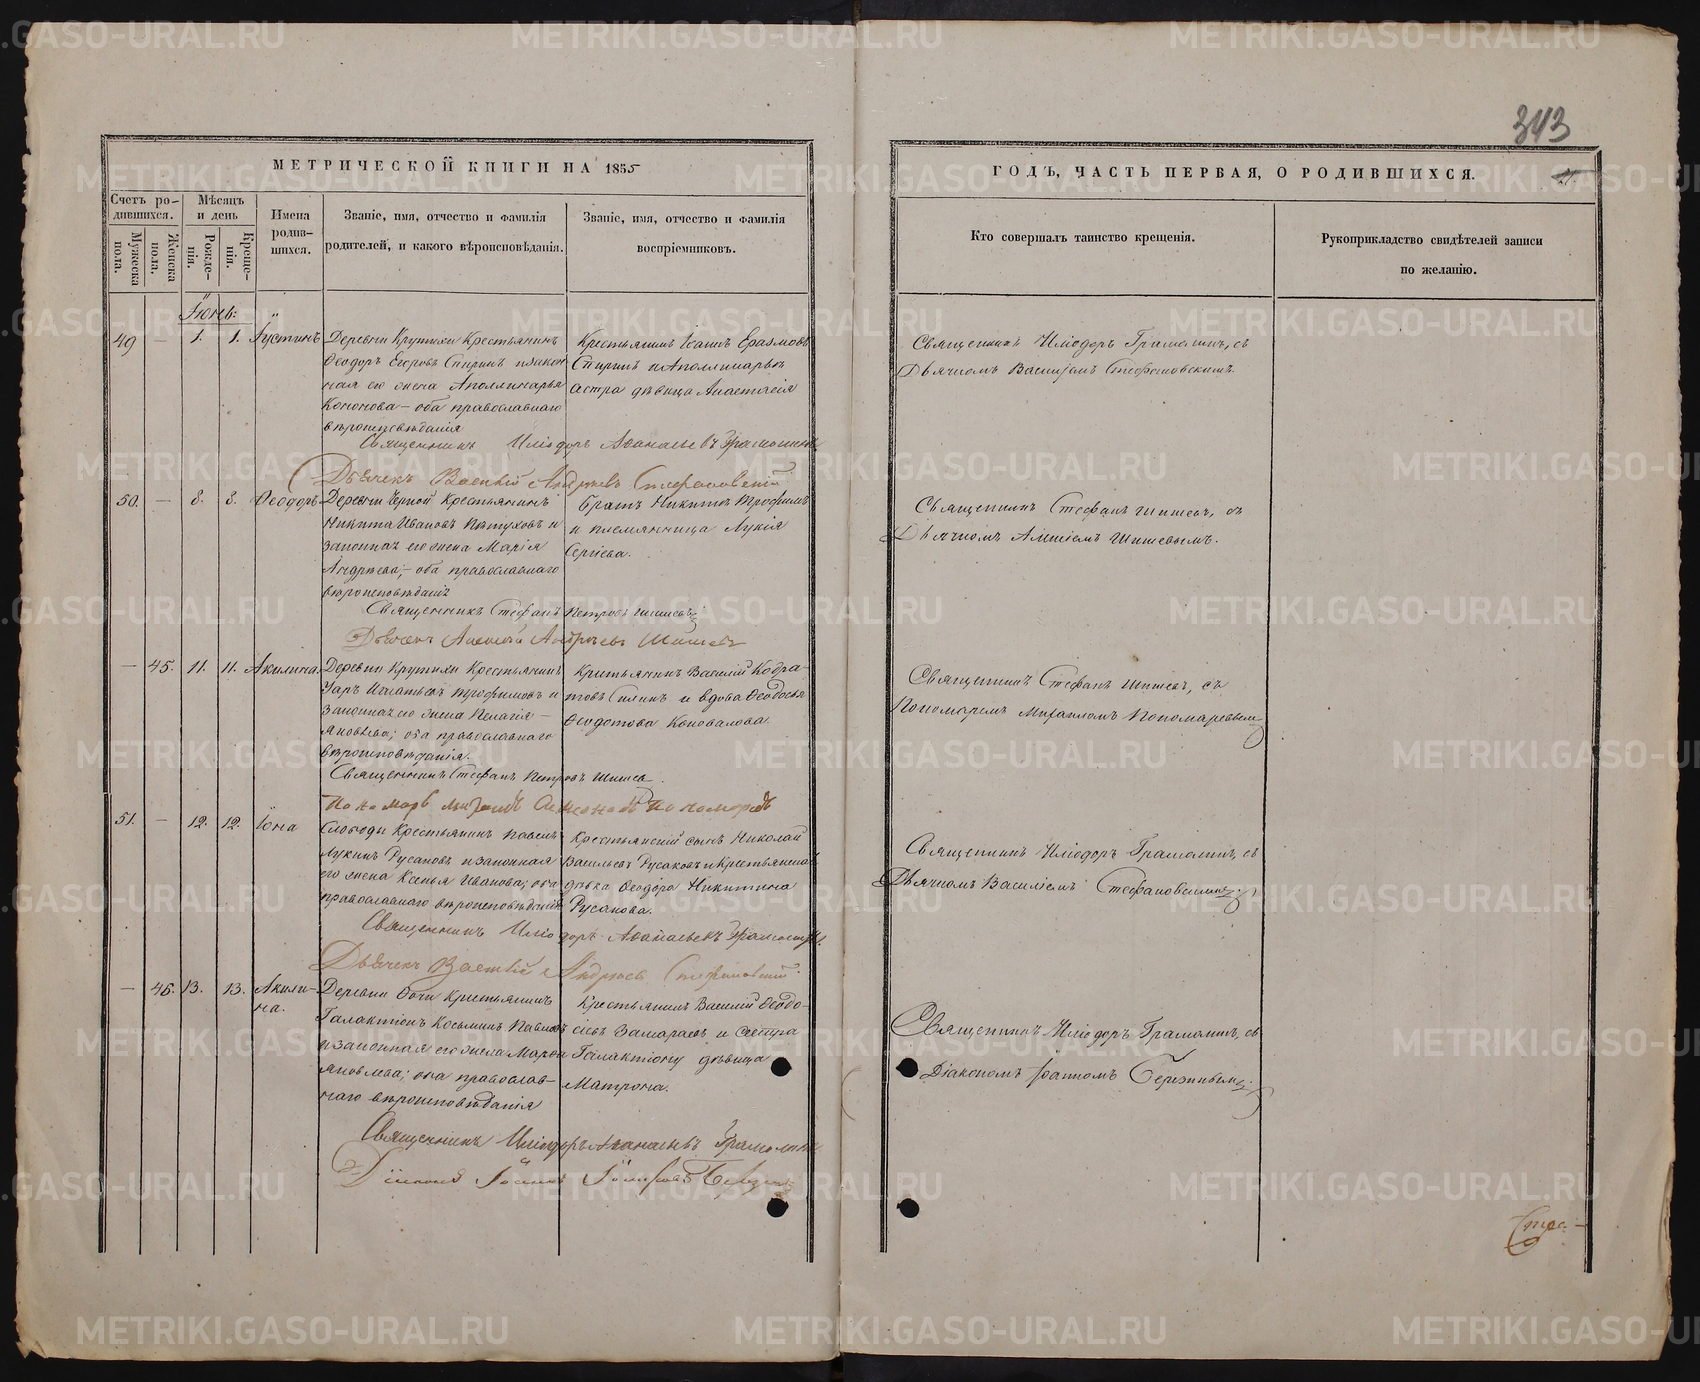 343
МЕТРИЧЕСКОЙ КНИГИ НА 1855
ГОДЪ, ЧАСТЬ ПЕРВАЯ, О РОДИВШИХСЯ.
Счетъ ро-
дившихся.
Мужеска
пола.
Женска
пола.
Мѣсяцъ
и день
Рожде-
нія.
Креще-
нія.
Имена
родив-
шихся.
Званіе, имя, отчество и фамилія
родителей, и какого вѣроисповѣданія.
Званіе, имя, отчество и фамилія
воспріемниковъ.
Кто совершалъ таинство крещенія.
Рукоприкладство свидѣтелей записи
по желанію.
Іюнь:
49 — 1. 1. Іустинъ
Деревни Крутихи Крестьянинъ
Ѳеодоръ Егоровъ Спиринъ и закон
ная его жена Аполлинарья
Кононова — оба православнаго
вѣроисповѣданія
Крестьянинъ Іоаннъ Еразмовъ
Спиринъ и Аполлинарьи
сестра дѣвица Анастасія
Священникъ Иліодоръ Грамолинъ, съ
Дьячкомъ Василіемъ Стефановскимъ.
Священникъ Иліодоръ Аѳанасьевъ Грамолинъ
Дьячекъ Василій Андреевъ Стефановскій
50. — 8. 8. Ѳеодоръ
Деревни Черной Крестьянинъ
Никита Ивановъ Пѣтуховъ и
законная его жена Марія
Андреева; — оба православнаго
вѣроисповѣданія
Братъ Никиты Трофимъ
и племянница Лукія
Сергіева.
Священникъ Стефанъ Шишевъ, съ
Дьячкомъ Алексіемъ Шишевымъ.
Священникъ Стефанъ Петровъ Шишевъ
Дьячекъ Алексѣй Андреевъ Шишевъ
— 45. 11. 11. Акилина.
Деревни Крутихи Крестьянинъ
Игнатьевъ Трофимовъ и
законная его жена Пелагія —
Яковлева; оба православнаго
вѣроисповѣданія.
Крестьянинъ Василій Кодра-
товъ и вдова Ѳеодосья
Ѳеодотова Коновалова.
Священникъ Стефанъ Шишевъ, съ
Пономаремъ Михаиломъ Пономаревымъ
Священникъ Стефанъ Петровъ Шишевъ.
Пономарь Михаилъ Пономаревъ
51. — 12. 12. Іона
Слободы Крестьянинъ Павелъ
Лукинъ Русаковъ и законная
его жена Ксенья Иванова; оба
православнаго вѣроисповѣданія
Крестьянскій сынъ Николай
Васильевъ Русаковъ и Крестьянская
дѣвка Ѳеодора Никитина
Русакова.
Священникъ Иліодоръ Грамолинъ, съ
Дьячкомъ Василіемъ Стефановскимъ.
Священникъ Иліодоръ Аѳанасьевъ Грамолинъ
Дьячекъ Василій Андреевъ Стефановскій.
— 46. 13. 13. Акили-
на.
Деревни Бочи Крестьянинъ
Галактіонъ Косьминъ Павловъ
и законная его жена Марѳа
Яковлева; оба православ-
наго вѣроисповѣданія
Крестьянинъ Василій Ѳеодо-
сіевъ Замараевъ и сестра
Галактіону дѣвица
Матрона.
Священникъ Иліодоръ Грамолинъ, съ
Діакономъ Іоанномъ
Священникъ Иліодоръ Аѳанасьевъ Грамолинъ
Діаконъ Іоаннъ